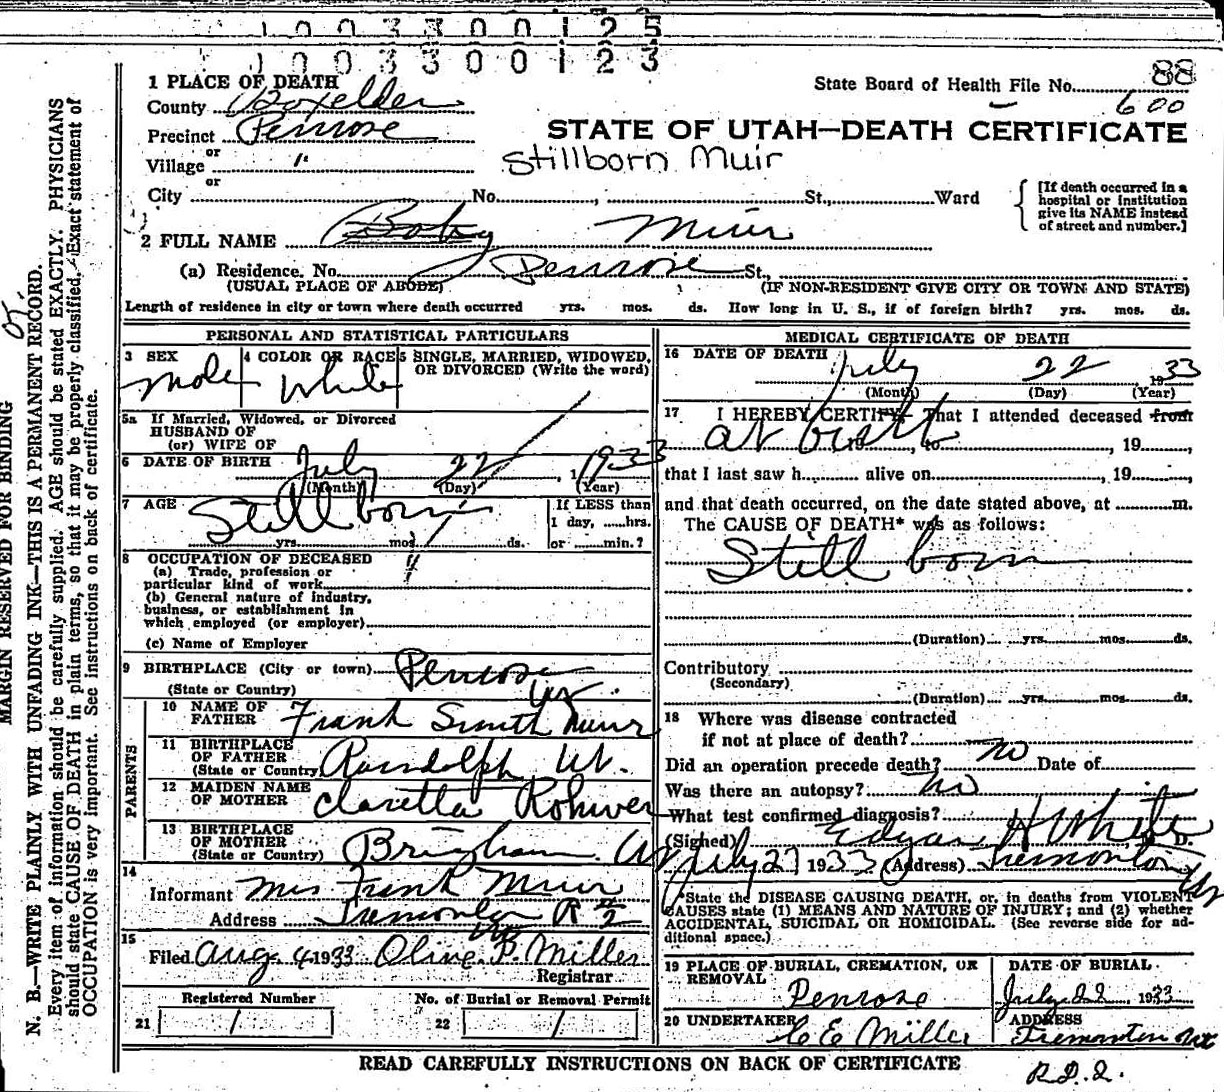 1 0 0 3 3 0 0 1 2 5
1 0 0 3 3 0 0 1 2 3
1 PLACE OF DEATH
County Boxelder
Precinct Penrose
or
Village "
or
City No. , St., Ward
State Board of Health File No. 88
600
STATE OF UTAH—DEATH CERTIFICATE
Stillborn Muir
[If death occurred in a
hospital or institution
give its NAME instead
of street and number.]
2 FULL NAME Baby Muir
(a) Residence. No. Penrose St.,
(USUAL PLACE OF ABODE) (IF NON-RESIDENT GIVE CITY OR TOWN AND STATE)
Length of residence in city or town where death occurred yrs. mos. ds. How long in U. S., if of foreign birth? yrs. mos. ds.
PERSONAL AND STATISTICAL PARTICULARS
3 SEX
Male
4 COLOR OR RACE
White
5 SINGLE, MARRIED, WIDOWED,
OR DIVORCED (Write the word)
5a If Married, Widowed, or Divorced
HUSBAND OF
(or) WIFE OF
6 DATE OF BIRTH July 22, 1933
(Month) (Day) (Year)
7 AGE Still born
yrs. mos. ds.
If LESS than
1 day, ......hrs.
or ......min.?
8 OCCUPATION OF DECEASED
(a) Trade, profession or
particular kind of work
(b) General nature of industry,
business, or establishment in
which employed (or employer)
(c) Name of Employer
9 BIRTHPLACE (City or town) Penrose
(State or Country) Ut.
PARENTS
10 NAME OF
FATHER Frank Smith Muir
11 BIRTHPLACE
OF FATHER
(State or Country) Randolph Ut.
12 MAIDEN NAME
OF MOTHER Claretta Rohwer
13 BIRTHPLACE
OF MOTHER
(State or Country) Brigham Ut
14
Informant Mrs Frank Muir
Address Tremonton R #2
Ut
15
Filed Aug 4 1933 Olive P. Miller
Registrar
Registered Number
21 1
No. of Burial or Removal Permit
22 1
MEDICAL CERTIFICATE OF DEATH
16 DATE OF DEATH July 22 1933
(Month) (Day) (Year)
17 I HEREBY CERTIFY That I attended deceased from
at birth, to , 19
that I last saw h alive on , 19
and that death occurred, on the date stated above, at m.
The CAUSE OF DEATH* was as follows:
Still born
(Duration) yrs. mos. ds.
Contributory
(Secondary)
(Duration) yrs. mos. ds.
18 Where was disease contracted
if not at place of death?
Did an operation precede death? no Date of
Was there an autopsy? no
What test confirmed diagnosis?
(Signed) Edgar H White D.
July 27 1933 (Address) Tremonton Ut
*State the DISEASE CAUSING DEATH, or, in deaths from VIOLENT
CAUSES state (1) MEANS AND NATURE OF INJURY; and (2) whether
ACCIDENTAL, SUICIDAL OR HOMICIDAL. (See reverse side for ad-
ditional space.)
19 PLACE OF BURIAL, CREMATION, OR
REMOVAL
Penrose
DATE OF BURIAL
July 22 1933
20 UNDERTAKER
C E Miller
ADDRESS
Tremonton Ut
R.D.2.
READ CAREFULLY INSTRUCTIONS ON BACK OF CERTIFICATE
MARGIN RESERVED FOR BINDING
N. B.—WRITE PLAINLY WITH UNFADING INK—THIS IS A PERMANENT RECORD.
Every item of information should be carefully supplied. AGE should be stated EXACTLY. PHYSICIANS
should state CAUSE OF DEATH in plain terms, so that it may be properly classified. Exact statement of
OCCUPATION is very important. See instructions on back of certificate.